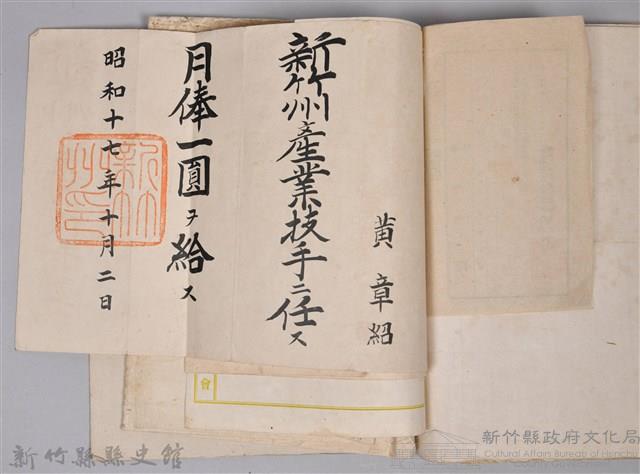 黄章紹
新竹州產業技手ニ任ス
月俸一圓ヲ給ス
昭和十七年十月二日
新竹州印
會
新竹縣縣史館
新竹縣政府文化局
Cultural Affairs Bureau of Hsinchu